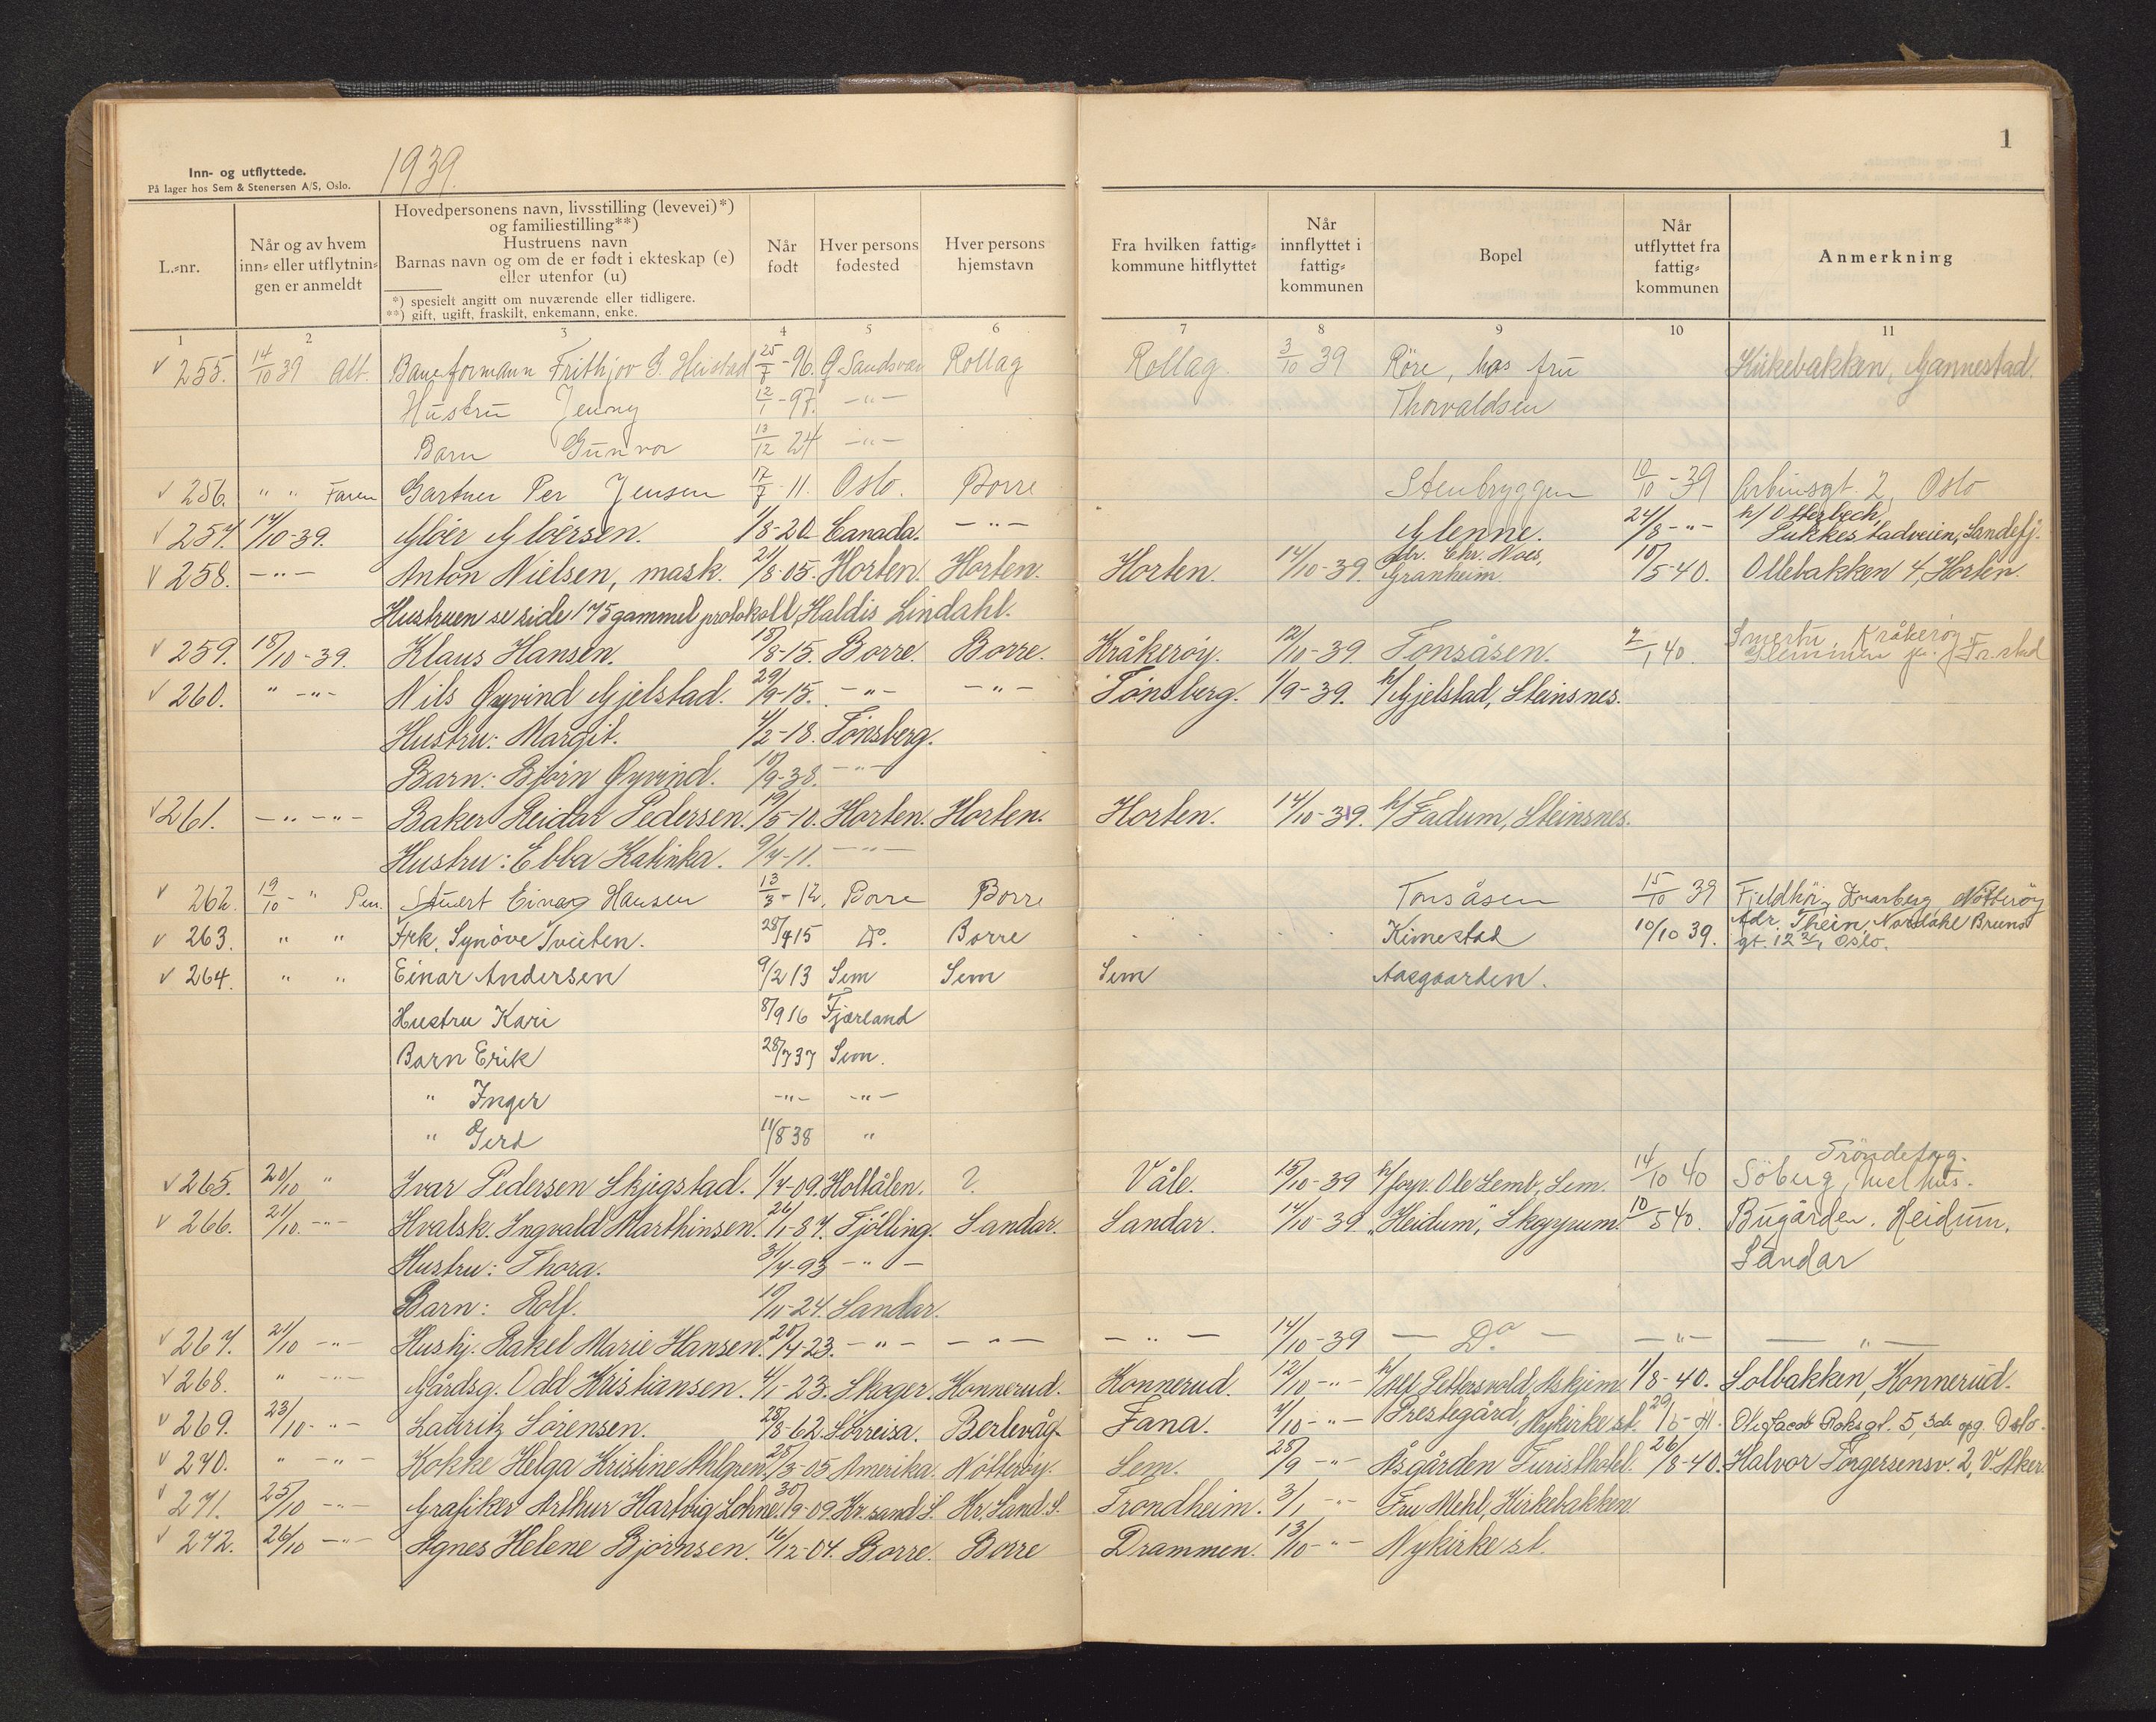 Inn- og utflyttede.
På lager hos Sem & Stenersen A/S, Oslo.
1939.
1
L.-nr.
Når og av hvem inn- eller utflytningen er anmeldt
Hovedpersonens navn, livsstilling (levevei)*) og familiestilling**)
Hustruens navn
Barnas navn og om de er født i ekteskap (e) eller utenfor (u)
*) spesielt angitt om nuværende eller tidligere.
**) gift, ugift, fraskilt, enkemann, enke.
Når født
Hver persons fødested
Hver persons hjemstavn
Fra hvilken fattigkommune hitflyttet
Når innflyttet i fattigkommunen
Bopel
Når utflyttet fra fattigkommunen
Anmerkning
1 2 3 4 5 6 7 8 9 10 11
255. 14/10 39 Att. Baneformann Frithjov G. Heistad 25/7-96. Ø. Sandsvær Rollag Rollag. 3/10 39 Röre, hos fru Kirkebakken, Gannestad.
Hustru Jenny 12/1-97. -"- Thorvaldsen
Barn Gunvor 13/12 24 -"-
256. " " Faren Gartner Per Jensen 17/7 11. Oslo. Borre Stenbryggen 10/10-39 Arbinsgt. 2, Oslo
257. 14/10-39. 1/8-20. Canada. -"- Glenne. 24/8-"- h/ Otterbech, Pukkestadveien, Sandefj.
258. -"- Anton Nielsen, mask. 21/8-05. Horten. Horten. Horten. 14/10-39. Adr. Chr. Naes, Granheim. 15/5-40. Ollebakken 4, Horten.
Hustruen se side 175 gammel protokoll, Haldis Lindahl.
259. 18/10-39. Klaus Hansen. 18/8-15. Borre. Borre. Kråkerøy. 12/10-39. Tonsåsen. 2/1 40. Kråkerøy.
260. " -"- Nils Øyvind Gjelstad. 29/9-15. -"- -"- Tønsberg. 1/9-39. h/ Gjelstad, Steinsnes.
Hustru: Margit. 4/2-18. Tønsberg.
Barn: Bjørn Øyvind. 18/9-38. -"-
261. -"- -"- Baker Reidar Pedersen. 19/5-10. Horten. Horten. Horten. 14/10-39. h/ Fadum, Steinsnes.
Hustru: Ebba Katinka. 9/4-11. -"-
262. 19/10-" Stuert Einar Hansen 13/3-12. Borre Borre Tonsåsen 15/10 39 Fjeldhöy, Kvarberg Nötteröy
263. " " Frk. Synöve Tveiten. 28/4 15 Do. Borre Kimestad 10/10 39. Adr. Thein, Nordahl Bruns gt. 12 3/4, Oslo.
264. " " Einar Andersen 9/2 13 Sem Sem Sem Aasgaarden.
Hustru Kari 8/9 16 Fjærland
Barn Erik 28/7 37 Sem.
" Inger -"- -"-
" Gerd 11/8 38 "
265. 20/10 " Ivar Pedersen Skjigstad. 1/4-09. Holtålen. ? Våle. 15/10-39 h/ forp. Ole Lemb, Sem. 14/10 40 Söberg, Melhus. Tröndelag.
266. 21/10. -"- Hvalsk. Ingvald Marthinsen. 26/1-87. Tjølling. Sandar. Sandar. 14/10-39. "Heidum", Skoppum. 10/5 40. Bugården. Heidum, Sandar
Hustru: Thora. 31/4-93 -"-
Barn: Rolf. 19/11-24. Sandar.
267. 21/10 -"- Hushj. Rakel Marie Hansen. 20/4-23. -"- -"- -"- 14/10-39 Do -"- -"-
268. " -"- Gårdsg. Odd Kristiansen. 4/1-23. Skoger. Konnerud. Konnerud. 12/10-"- h/ Alf Pettersvold, Askjem 1/8-40. Solbakken, Konnerud.
269. 23/10-"- Lauritz Sørensen. 25/8-62. Sørreisa. Berlevåg. Fana. 4/10-"- Prestegård, Nykirke st. Ole Jacob Brochs gt. 5, 3de opg. Oslo.
270. " -"- Kokke Helga Kristine Ahlgren. 25/3-05 Amerika. Nøtterøy. Sem. 28/9-"- Åsgården Turisthotel. 26/8-40. Halvor Torgersensv. 2, V. Aker.
271. 25/10 -"- Grafiker Arthur Hartvig Lohne. 30/9-09. Kr.sand S. Kr. Sand. S. Trondheim. 3/1 -"- Fru Mehl, Kirkebakken.
272. 26/10 -"- Agnes Helene Bjørnsen. 16/12-04. Borre. Borre Drammen. 13/10-"- Nykirke st.